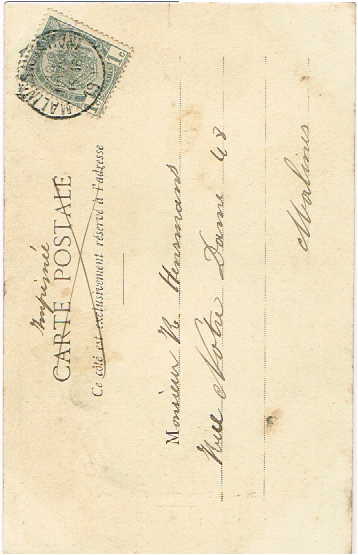 Imprimée
CARTE POSTALE
Ce côté est exclusivement réservé à l'adresse
Monsieur R Hensmans
Rue Notre Dame 48
Malines
1c
MALINES